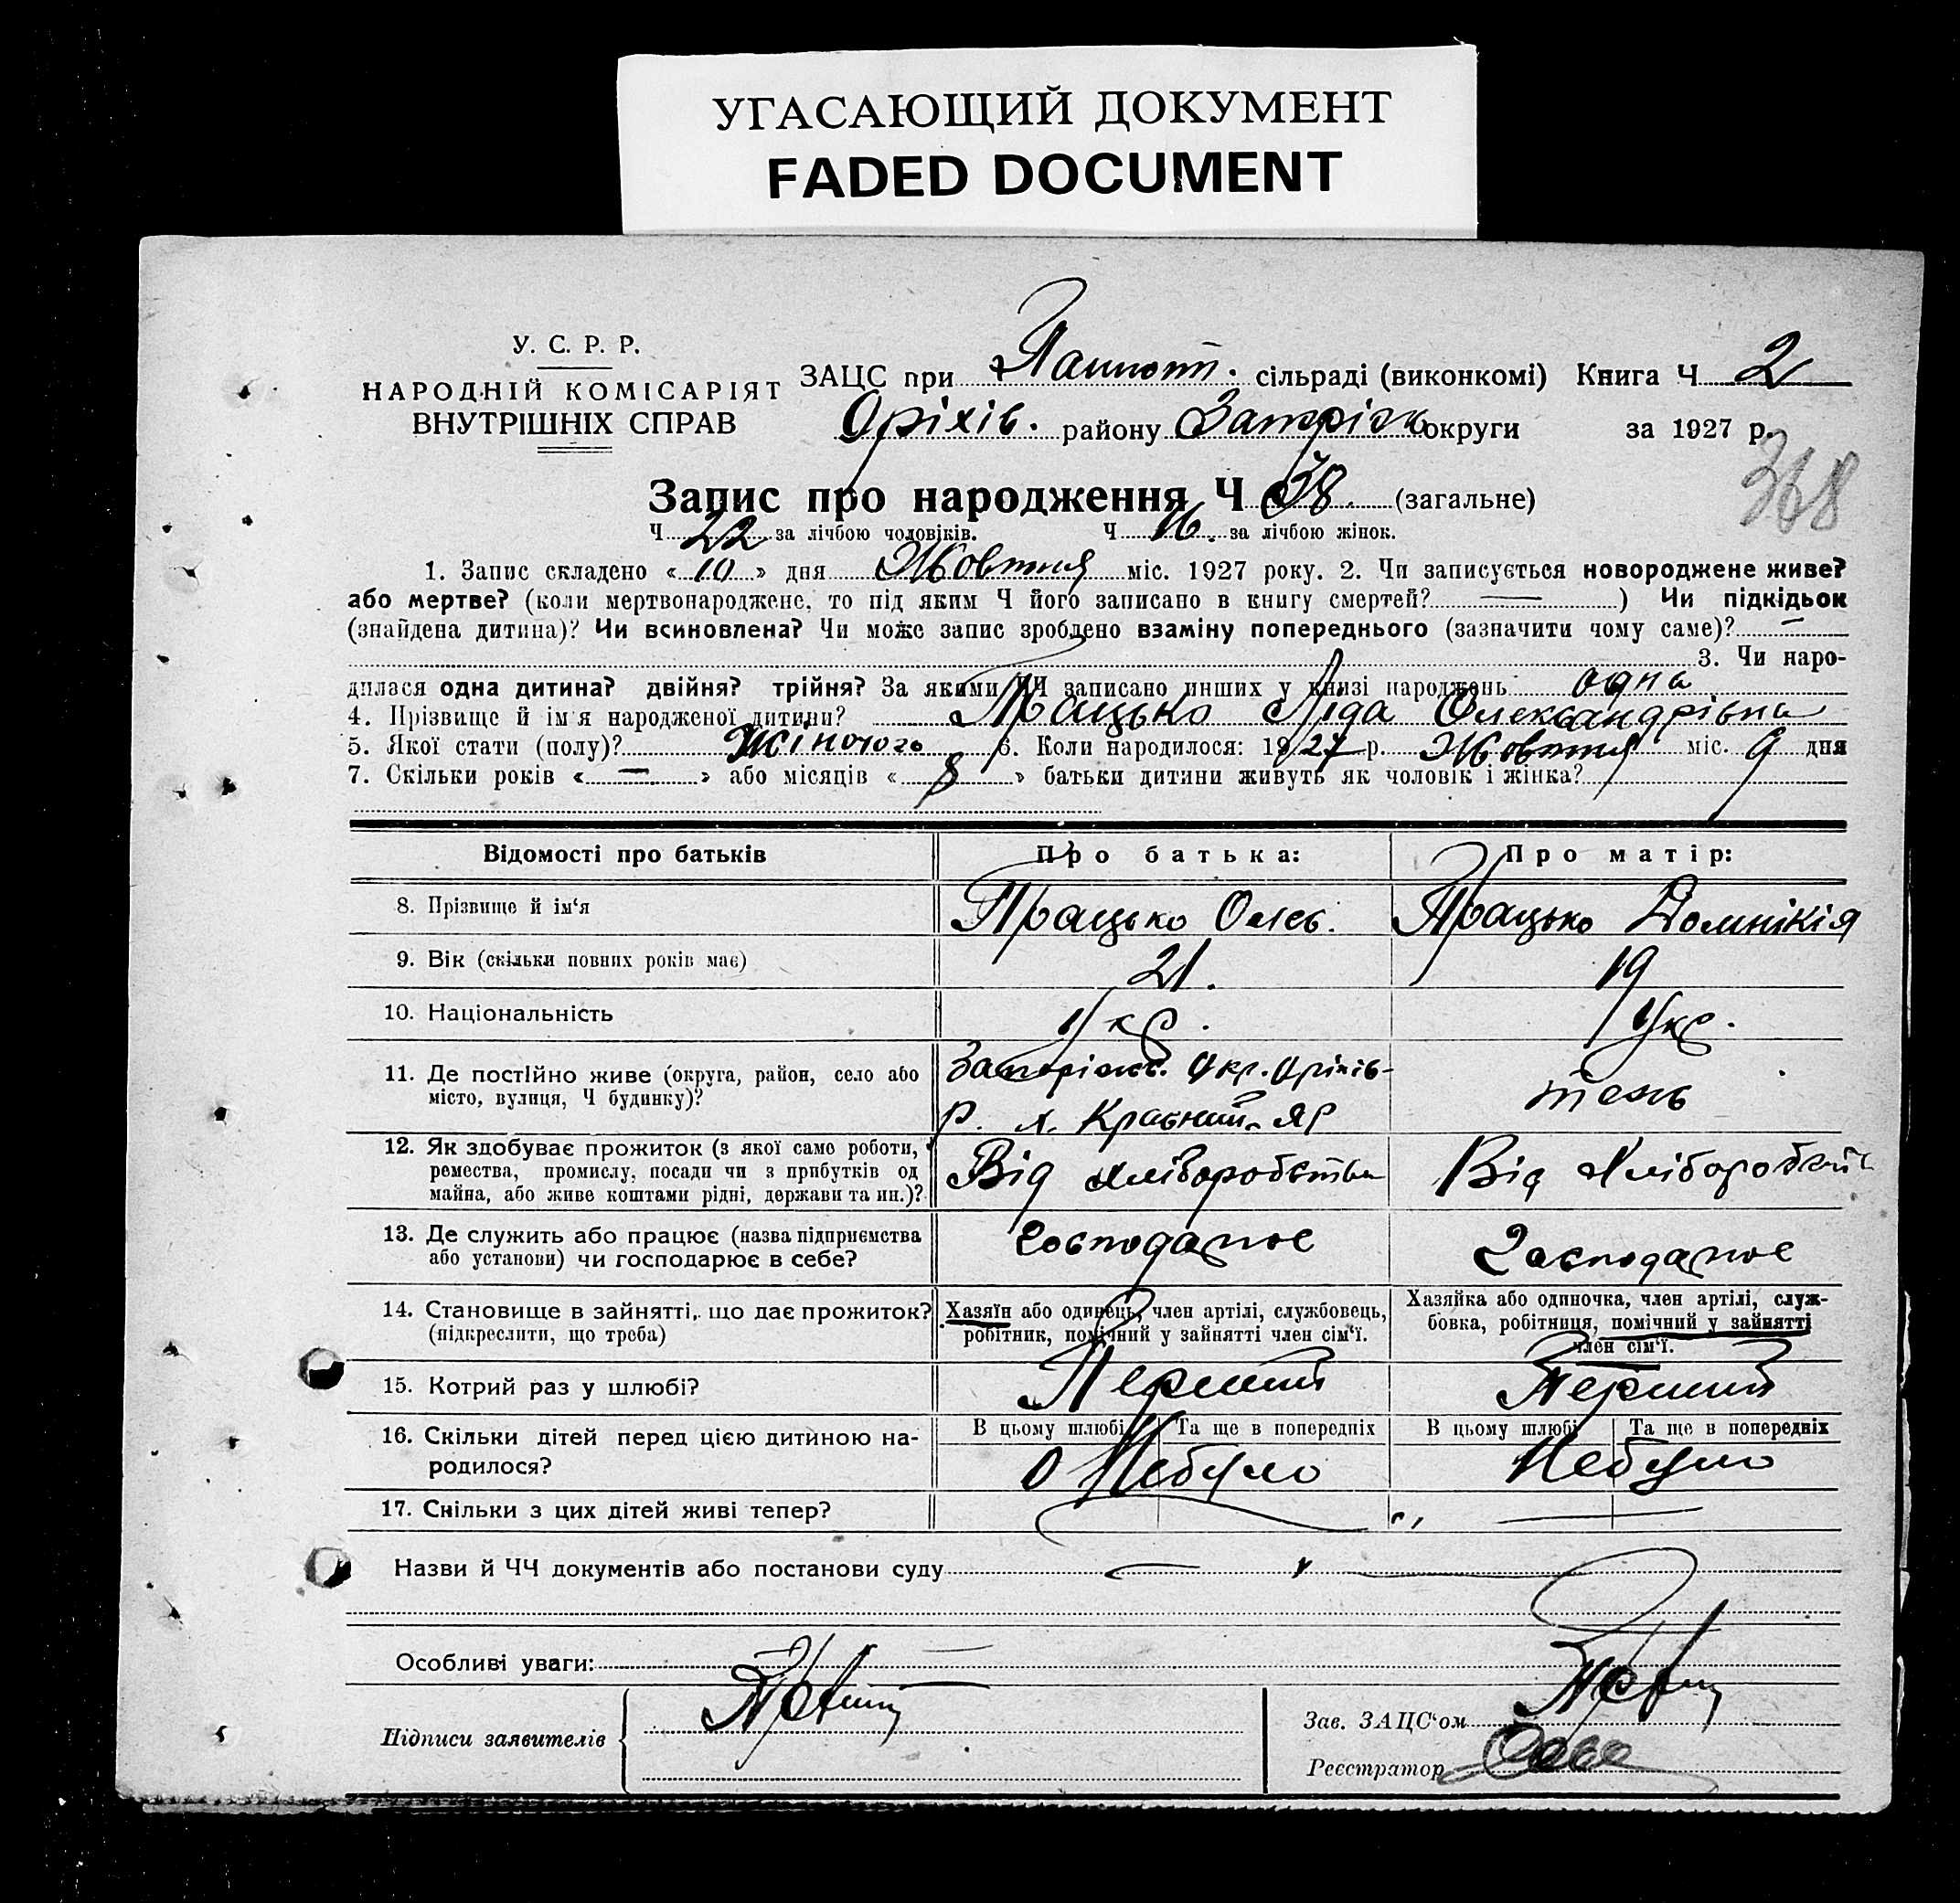 УГАСАЮЩИЙ ДОКУМЕНТ
FADED DOCUMENT
У. С. Р. Р.
НАРОДНІЙ КОМІСАРІЯТ
ВНУТРІШНІХ СПРАВ
ЗАЦС при сільраді (виконкомі) Книга Ч 2
Оріхів. району округи за 1927 р.
368
Запис про народження Ч 38. (загальне)
Ч 22 за лічбою чоловіків. Ч 16. за лічбою жінок.
1. Запис складено «10» дня Жовтня міс. 1927 року. 2. Чи записується новороджене живе?
або мертве? (коли мертвонароджене, то під яким Ч його записано в книгу смертей? —) Чи підкідьок
(знайдена дитина)? Чи всиновлена? Чи може запис зроблено взаміну попереднього (зазначити чому саме)? —
3. Чи наро-
дилася одна дитина? двійня? трійня? За якими ЧЧ записано инших у книзі народжень одна
4. Прізвище й ім'я народженої дитини? Працько Ліда Олександрівна
5. Якої стати (полу)? Жіночого 6. Коли народилося: 1927 р. Жовтня міс. 9 дня
7. Скільки років «—» або місяців «8» батьки дитини живуть як чоловік і жінка?
Відомості про батьків Про батька: Про матір:
8. Прізвище й ім'я Працько Олес. Працько Домнікія
9. Вік (скільки повних років має) 21. 19
10. Національність Укр. Укр.
11. Де постійно живе (округа, район, село або
місто, вулиця, Ч будинку)?
Запоріжж. Окр. Оріхів-
р. х. Красний-Яр
тежь
12. Як здобуває прожиток (з якої само роботи,
ремества, промислу, посади чи з прибутків од
майна, або живе коштами рідні, держави та ин.)?
Від хліборобства Від Хліборобств
13. Де служить або працює (назва підприємства
або установи) чи господарює в себе?
господарює Господарює
14. Становище в зайнятті, що дає прожиток?
(підкреслити, що треба)
Хазяїн або одинець, член артілі, службовець,
робітник, помічний у зайнятті член сім'ї.
Хазяйка або одиночка, член артілі, служ-
бовка, робітниця, помічний у зайнятті
член сім'ї.
15. Котрий раз у шлюбі? Перший Перший
16. Скільки дітей перед цією дитиною на-
родилося?
В цьому шлюбі Та ще в попередніх В цьому шлюбі Та ще в попередніх
0 Небуло Небуло
17. Скільки з цих дітей живі тепер? —
Назви й ЧЧ документів або постанови суду —
Особливі уваги:
Підписи заявителів
Зав. ЗАЦС'ом
Реєстратор